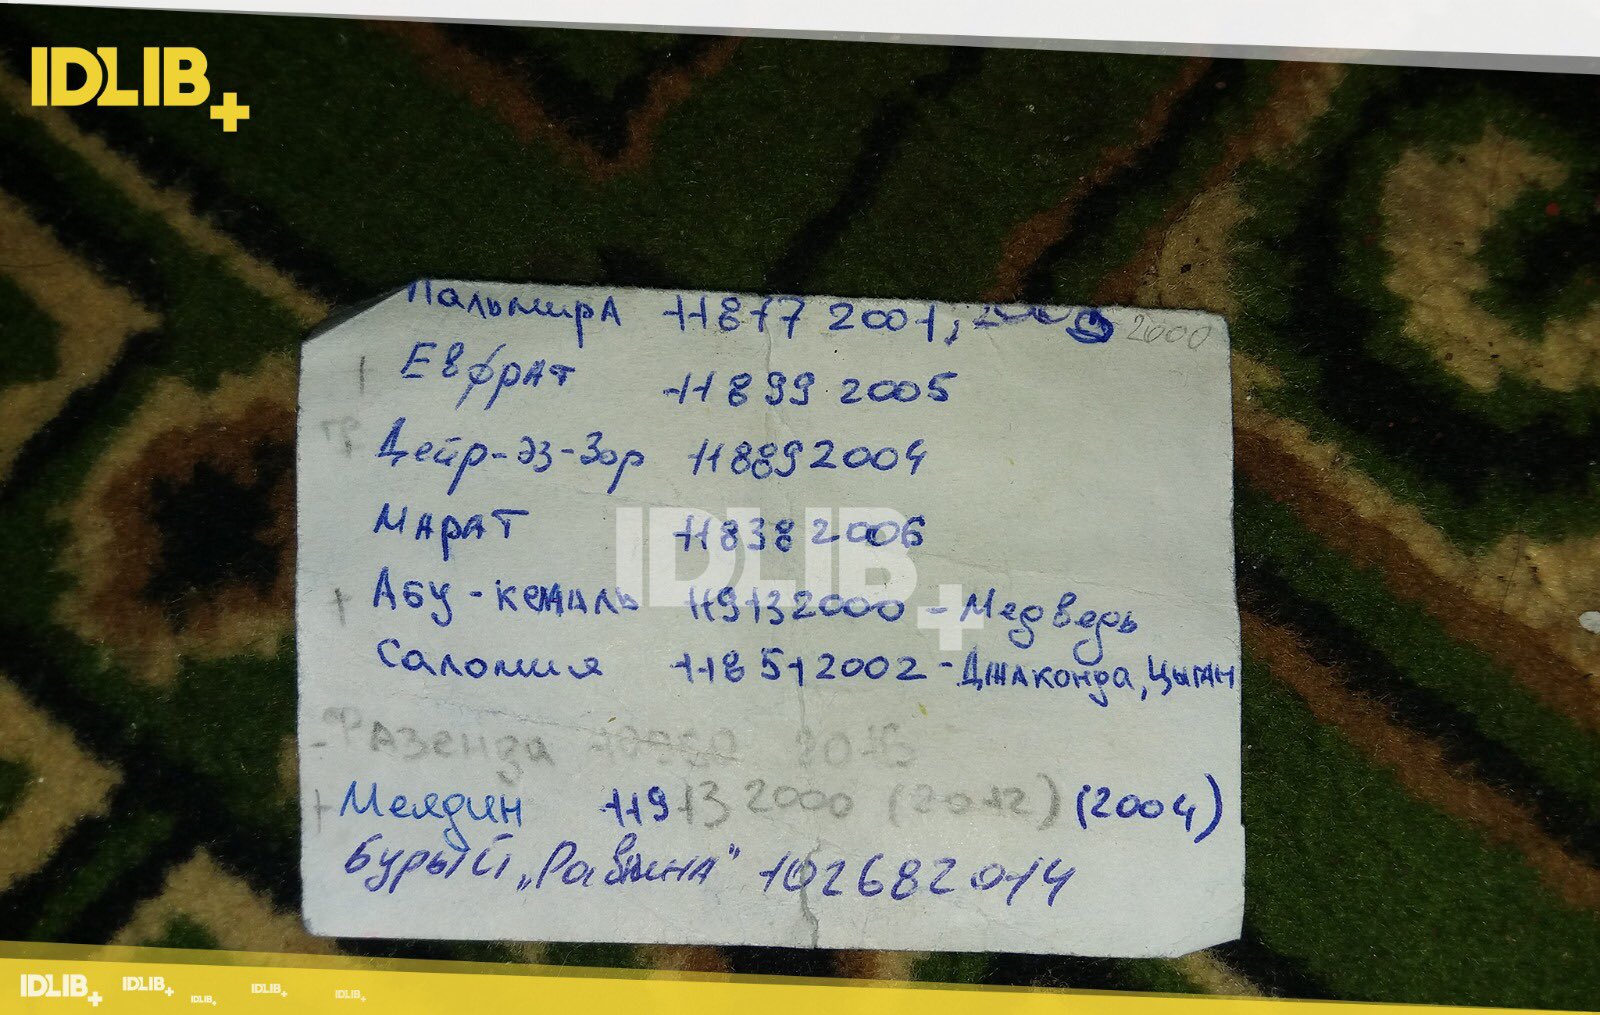 IDLIB+
ПальмирА 11817 2001, 2000
ЕвфрАт 11899 2005
Дейр-эз-Зор 118892004
МАрАТ 118382006
IDLIB+
+ Абу-кемаль 119132000 - Медведь
Саломия 118512002 - Джаконда, Цыган
- ФАзенда
+ Меядин 119132000 (2012) (2004)
Бурый „Равнина" 102682014
IDLIB+ IDLIB+ IDLIB+ IDLIB+ IDLIB+